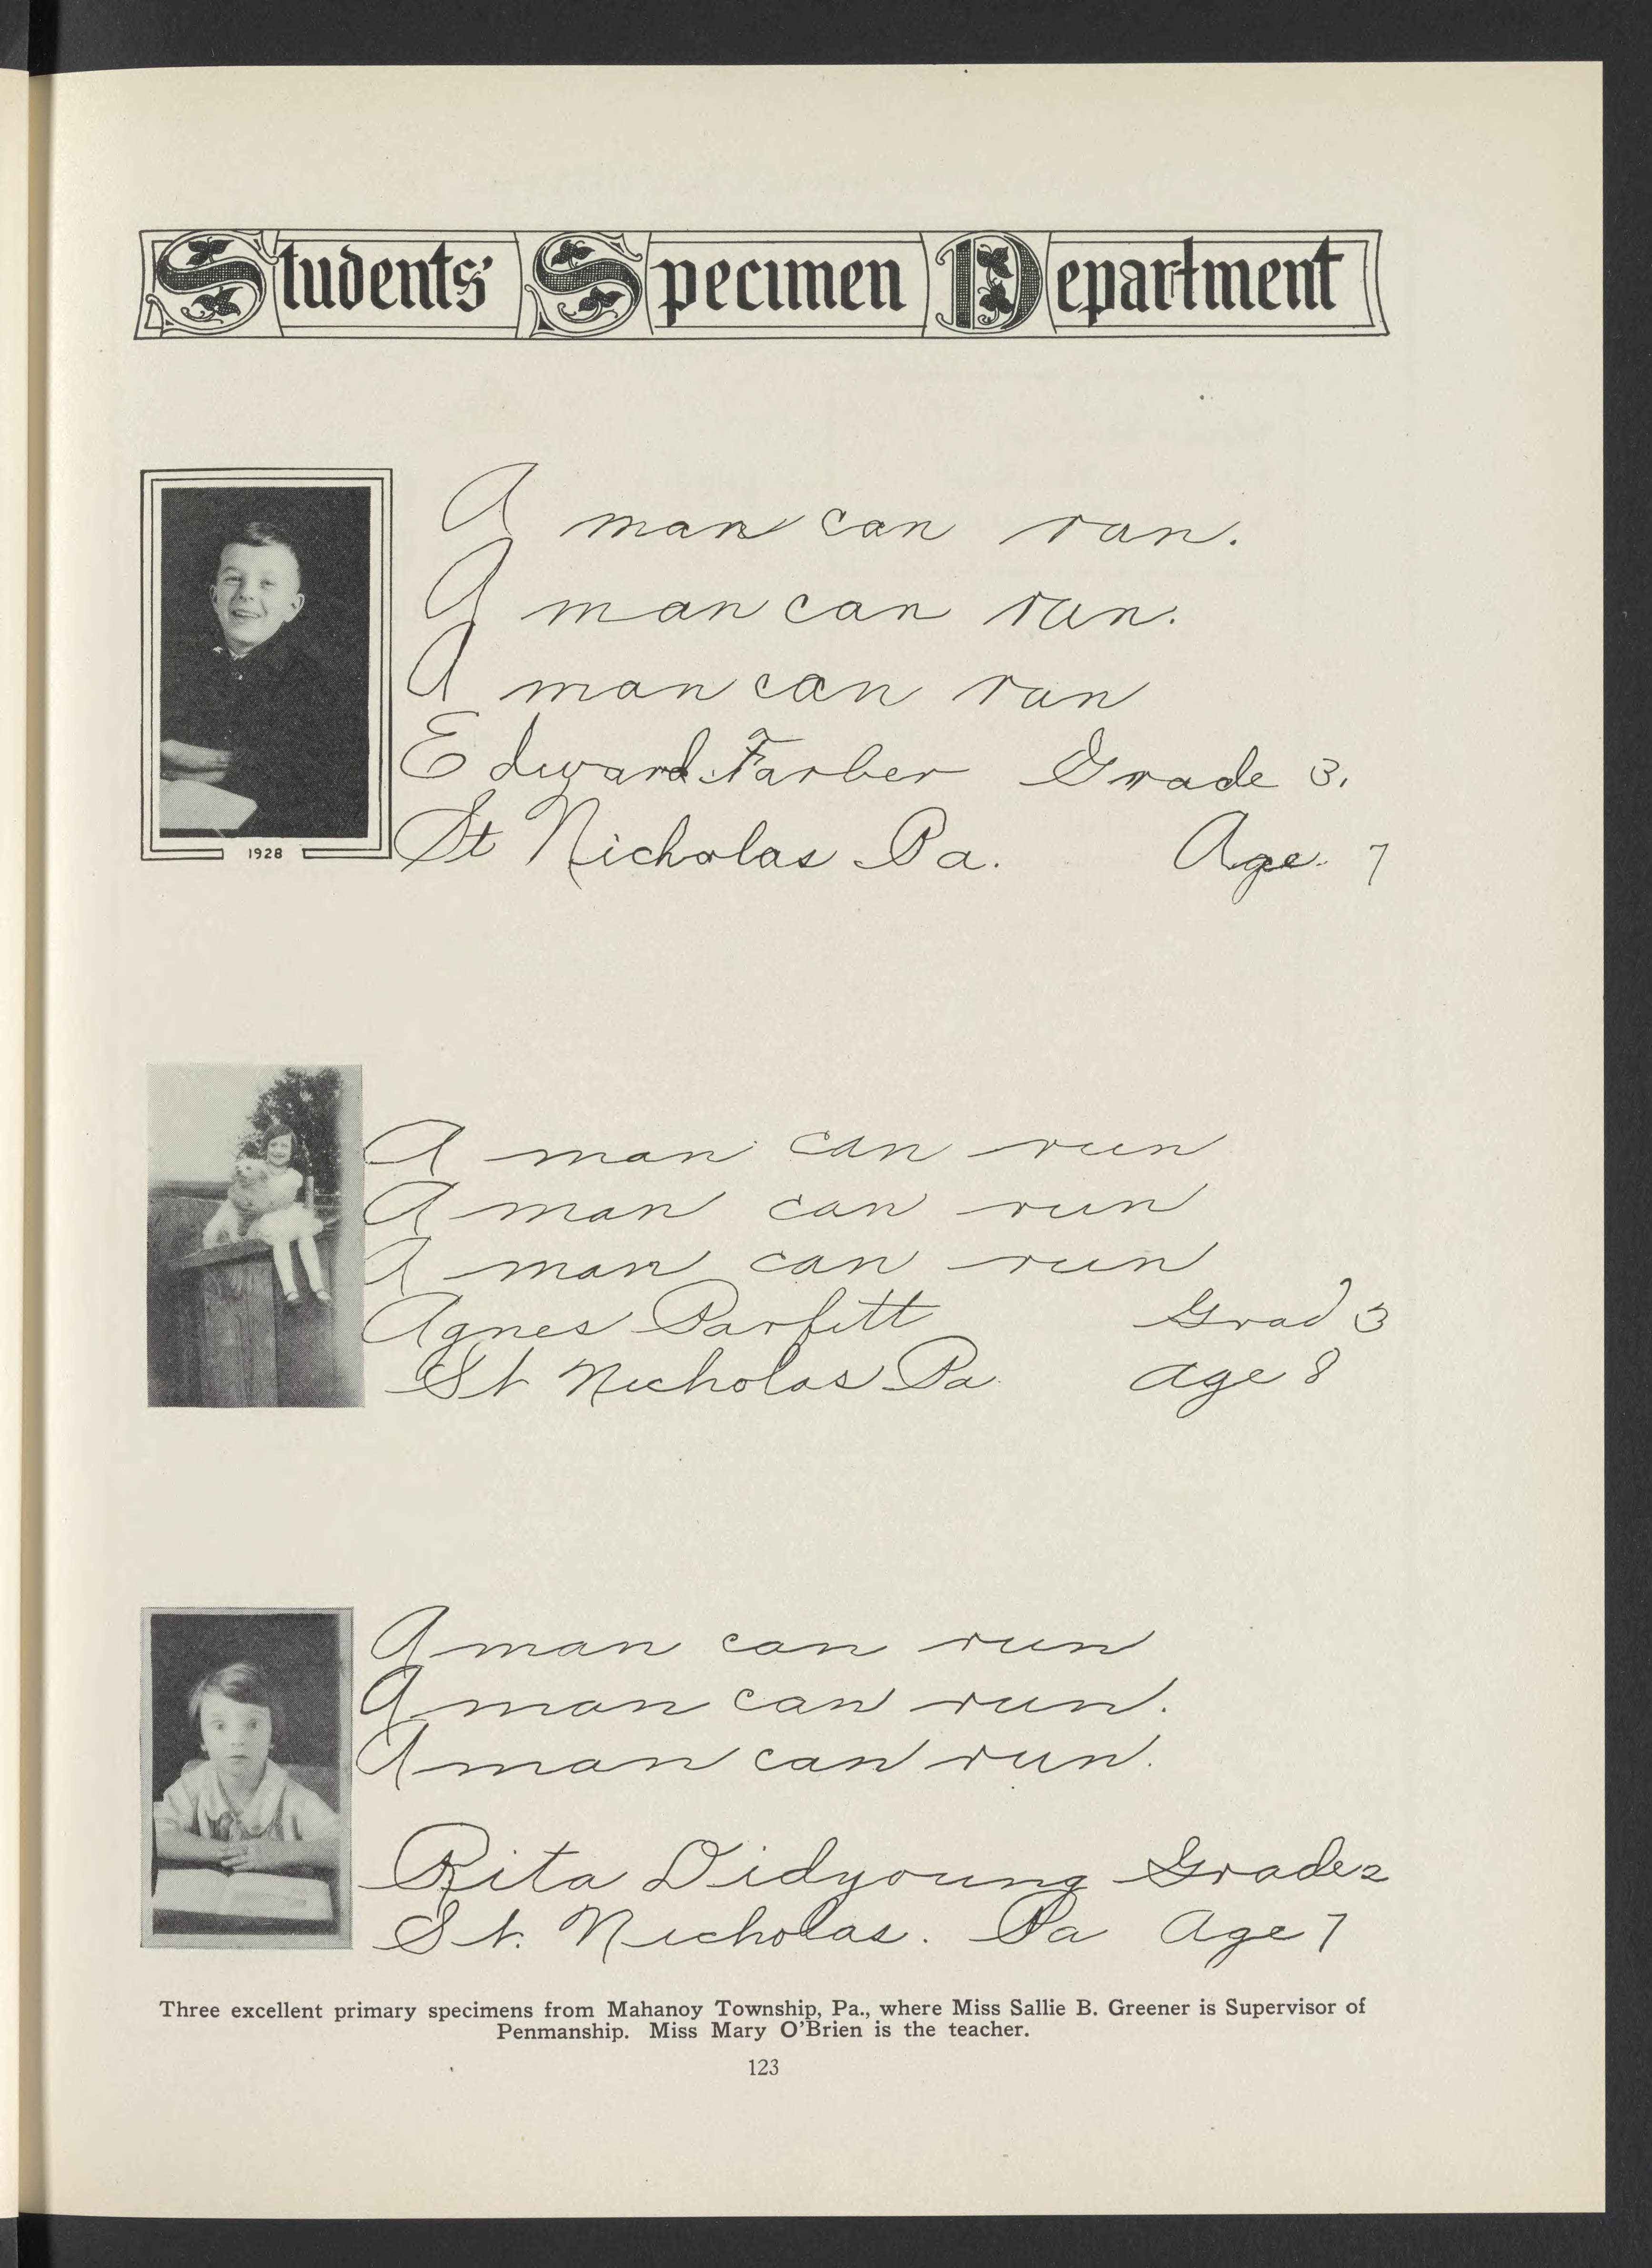 Students' Specimen Department
A man can ran.
A man can run.
A man can run
Edward Farber Grade 3.
St Nicholas Pa. Age. 7
1928
A man can run
A man can run
A man can run
Agnes Parfitt Grad 3
St Nicholas Pa. age 8
A man can run
A man can run.
A man can run.
Rita Didyoung Grade 2
St. Nicholas. Pa Age 7
Three excellent primary specimens from Mahanoy Township, Pa., where Miss Sallie B. Greener is Supervisor of
Penmanship. Miss Mary O'Brien is the teacher.
123